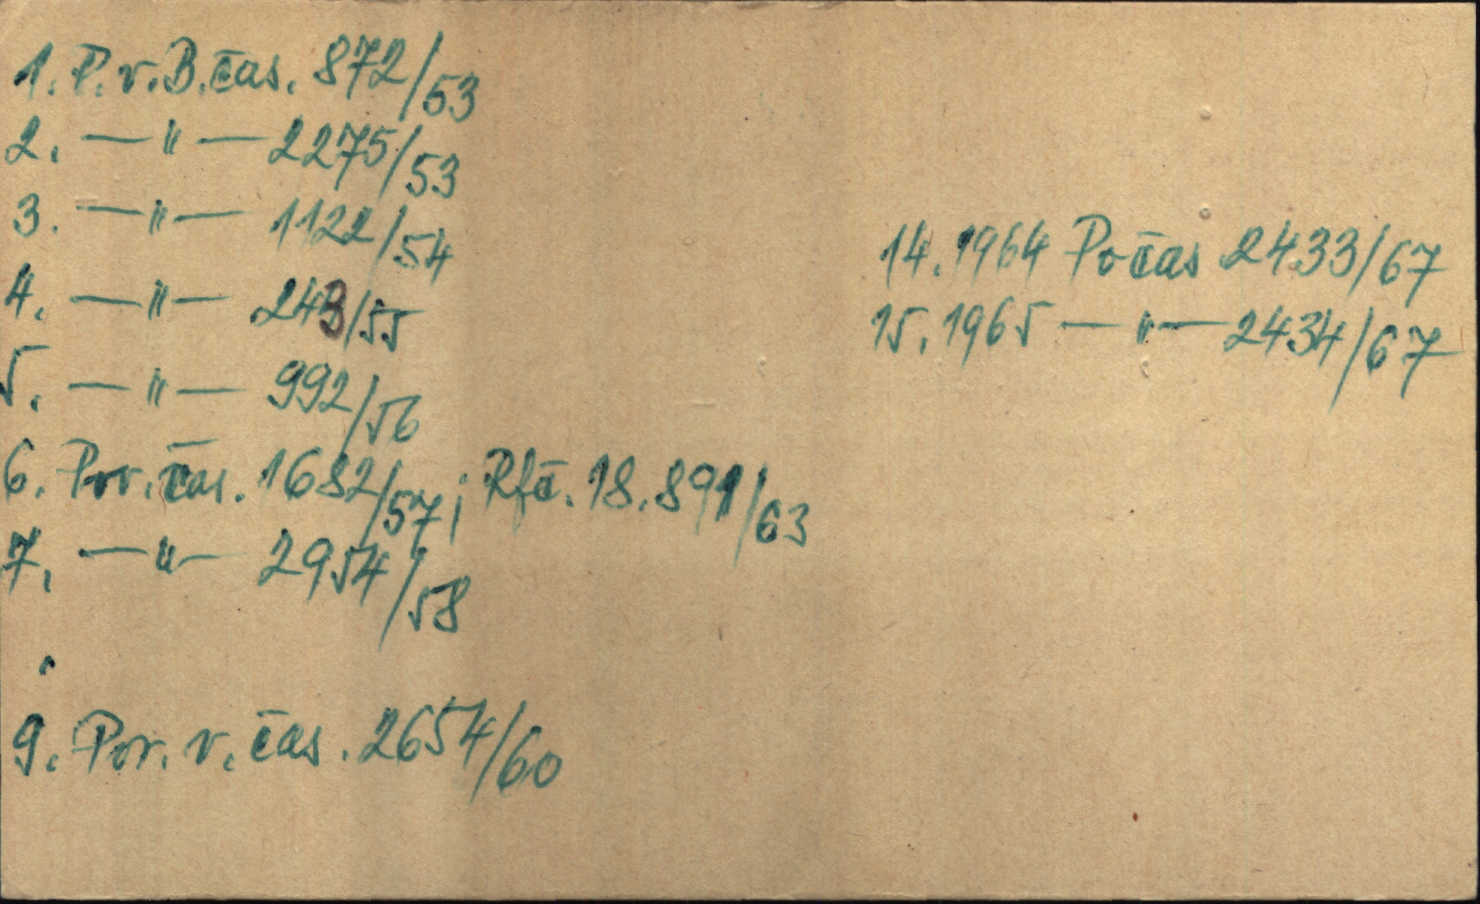 1. P. v. B. čas. 872/53
2. — " — 2275/53
3. — " — 1122/54
4. — " — 243/55
5. — " — 992/56
6. Pov. čas. 1682/57; Rfč. 18.891/63
7. — " — 2954/58
9. Pov. v. čas. 2654/60
14. 1964 Po čas 2433/67
15. 1965 — " — 2434/67